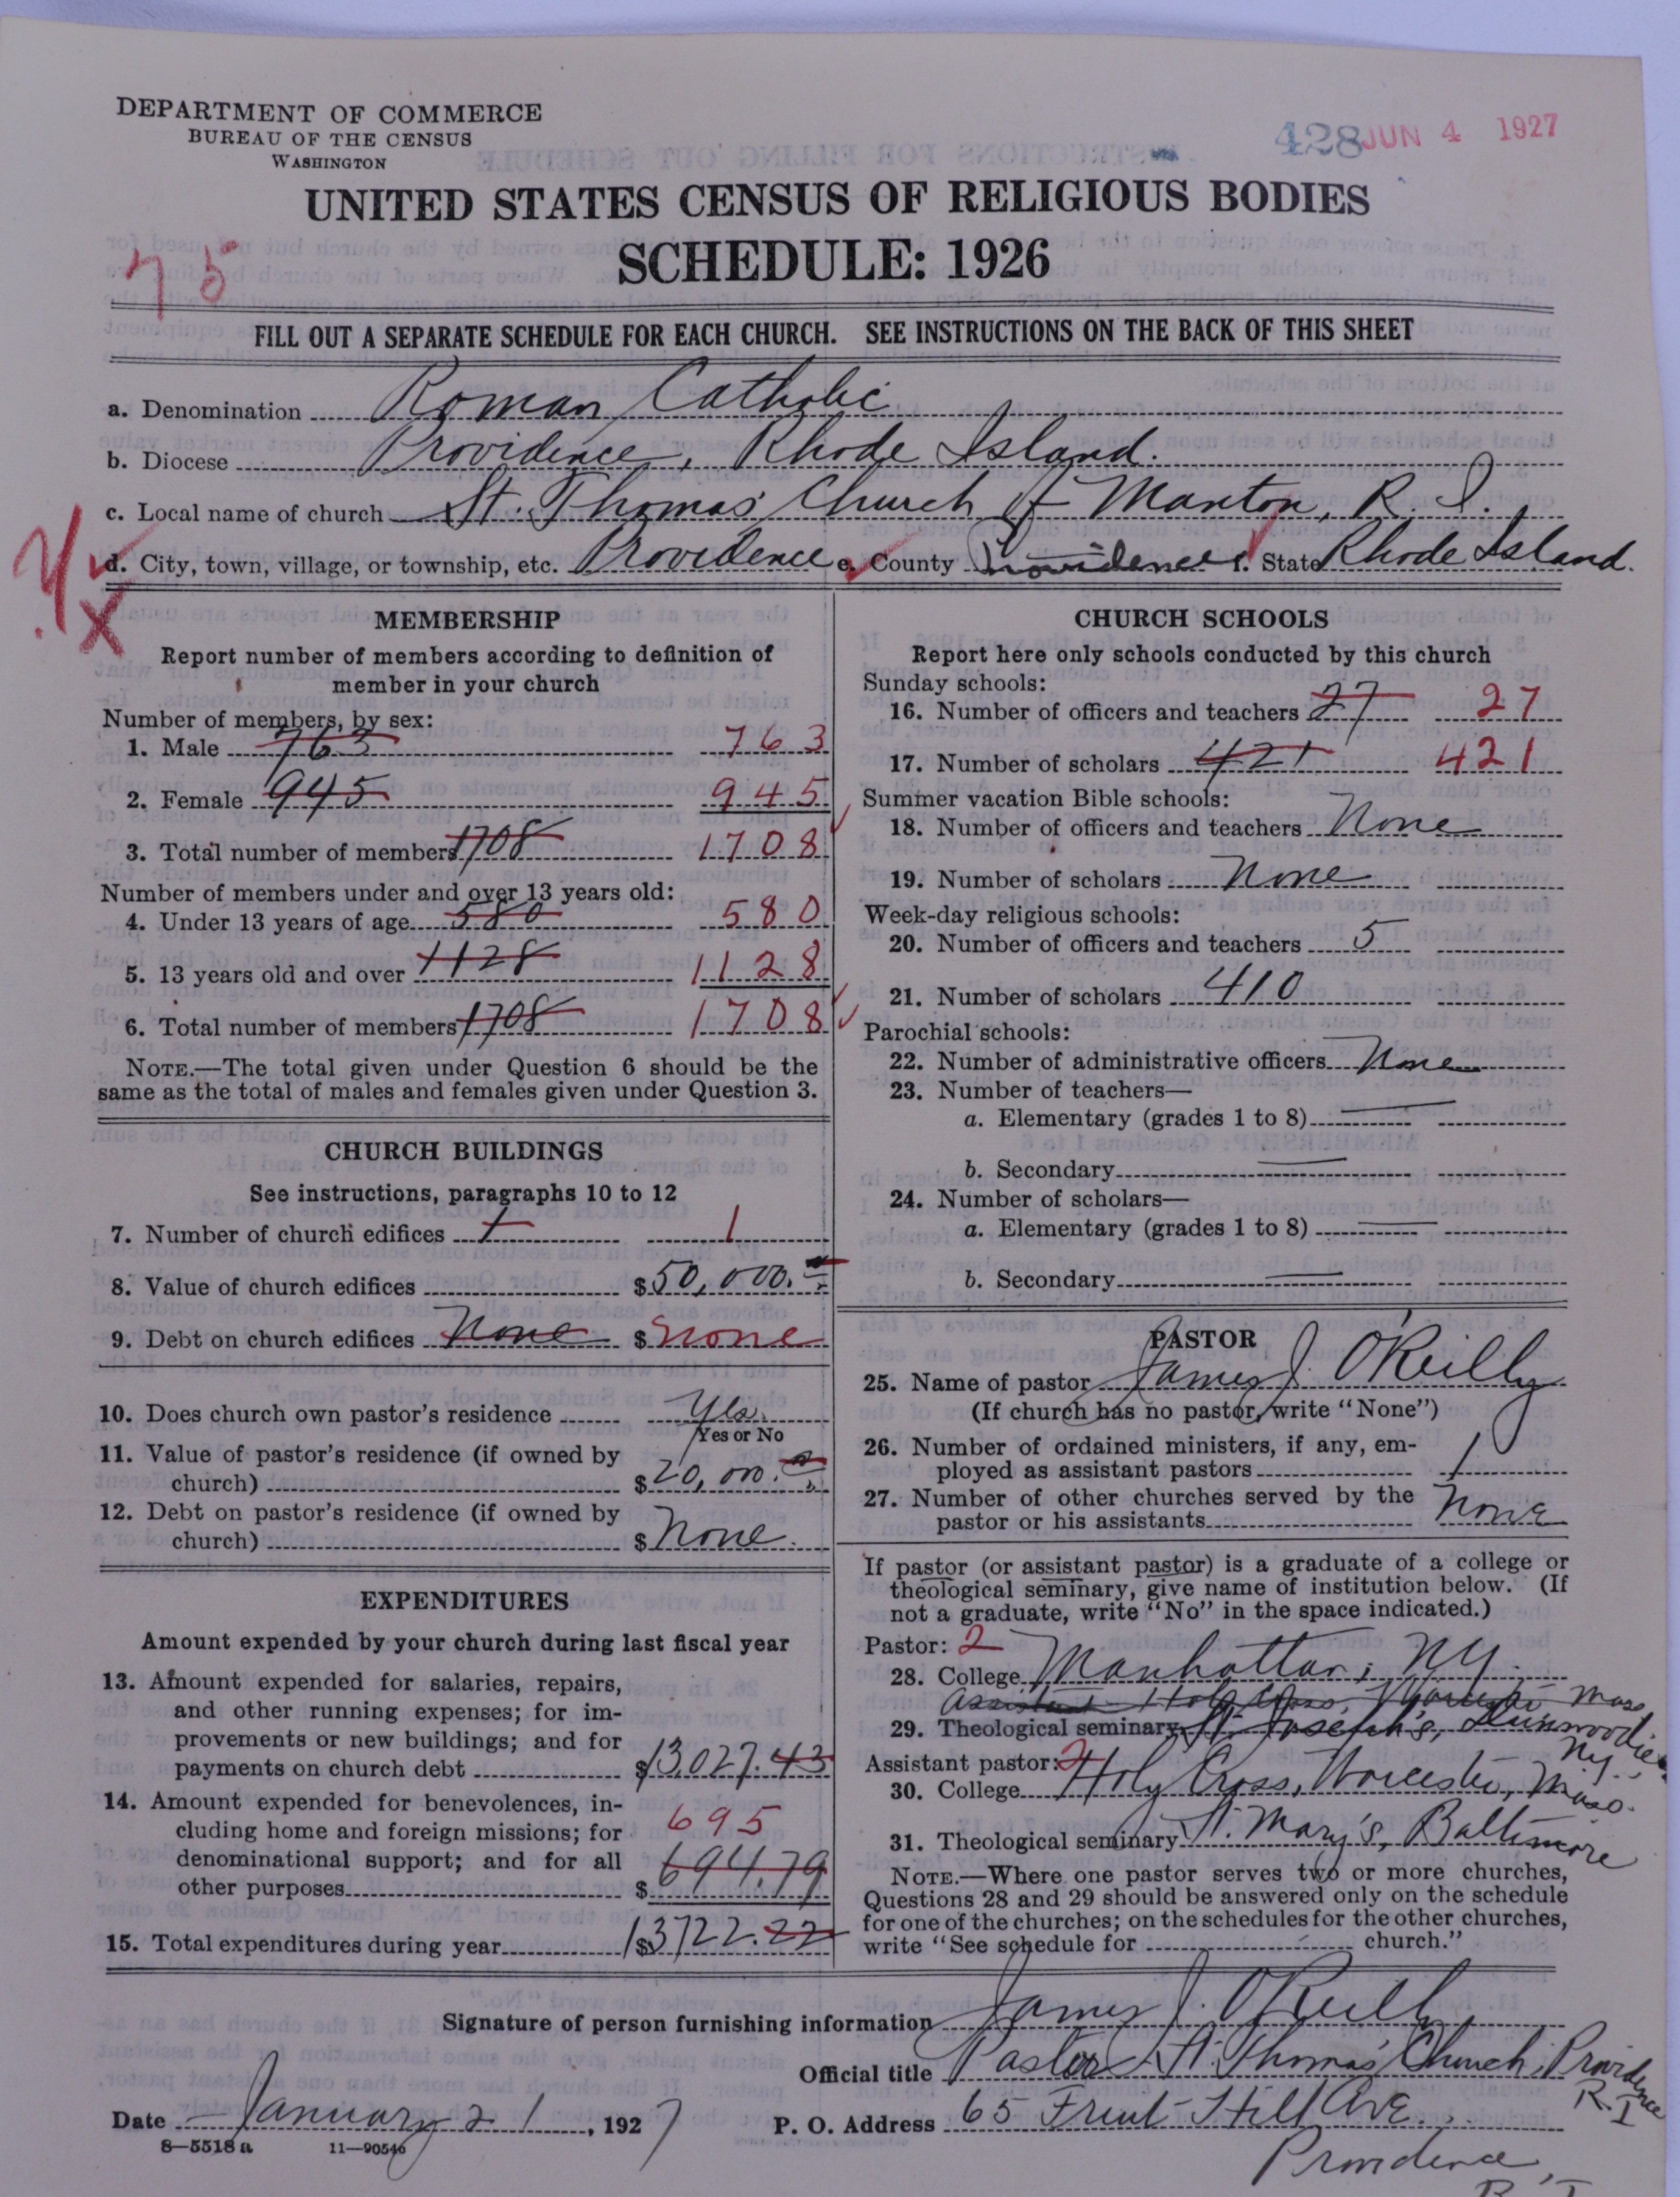 DEPARTMENT OF COMMERCE
BUREAU OF THE CENSUS
WASHINGTON
428 JUN 4 1927
UNITED STATES CENSUS OF RELIGIOUS BODIES
SCHEDULE: 1926
75
FILL OUT A SEPARATE SCHEDULE FOR EACH CHURCH. SEE INSTRUCTIONS ON THE BACK OF THIS SHEET
a. Denomination Roman Catholic
b. Diocese Providence, Rhode Island.
c. Local name of church St. Thomas' Church of Manton, R. I.
d. City, town, village, or township, etc. Providence e. County Providence f. State Rhode Island.
X
MEMBERSHIP
Report number of members according to definition of
member in your church
Number of members, by sex:
1. Male 763 763
2. Female 945 945
3. Total number of members 1708 1708
Number of members under and over 13 years old:
4. Under 13 years of age 580 580
5. 13 years old and over 1128 1128
6. Total number of members 1708 1708
NOTE.—The total given under Question 6 should be the
same as the total of males and females given under Question 3.
CHURCH BUILDINGS
See instructions, paragraphs 10 to 12
7. Number of church edifices 1 1
8. Value of church edifices $50,000.
9. Debt on church edifices None $ none
10. Does church own pastor's residence Yes.
Yes or No
11. Value of pastor's residence (if owned by
church) $20,000.
12. Debt on pastor's residence (if owned by
church) $ None.
EXPENDITURES
Amount expended by your church during last fiscal year
13. Amount expended for salaries, repairs,
and other running expenses; for im-
provements or new buildings; and for
payments on church debt $13,027.43
14. Amount expended for benevolences, in-
cluding home and foreign missions; for 695
denominational support; and for all
other purposes $ 694.79
15. Total expenditures during year $13722.22
CHURCH SCHOOLS
Report here only schools conducted by this church
Sunday schools:
16. Number of officers and teachers 27 27
17. Number of scholars 421 421
Summer vacation Bible schools:
18. Number of officers and teachers None
19. Number of scholars None
Week-day religious schools:
20. Number of officers and teachers 5
21. Number of scholars 410
Parochial schools:
22. Number of administrative officers None
23. Number of teachers—
a. Elementary (grades 1 to 8)
b. Secondary
24. Number of scholars—
a. Elementary (grades 1 to 8)
b. Secondary
PASTOR
25. Name of pastor James J. O'Reilly
(If church has no pastor, write "None")
26. Number of ordained ministers, if any, em-
ployed as assistant pastors 1
27. Number of other churches served by the
pastor or his assistants None
If pastor (or assistant pastor) is a graduate of a college or
theological seminary, give name of institution below. (If
not a graduate, write "No" in the space indicated.)
Pastor: 2
28. College Manhattan, N.Y.
Assistant Holy Cross, Worcester Mass
29. Theological seminary St. Joseph's, Dunwoodie
N.Y.
Assistant pastor: 2
30. College Holy Cross, Worcester, Mass.
31. Theological seminary St. Mary's, Baltimore
NOTE.—Where one pastor serves two or more churches,
Questions 28 and 29 should be answered only on the schedule
for one of the churches; on the schedules for the other churches,
write "See schedule for church."
Signature of person furnishing information James J. O'Reilly
Official title Pastor St. Thomas' Church, Providence
R.I
Date January 21, 1927 P. O. Address 65 Fruit Hill Ave.
8—5518a 11—90546
Providence,
R. I